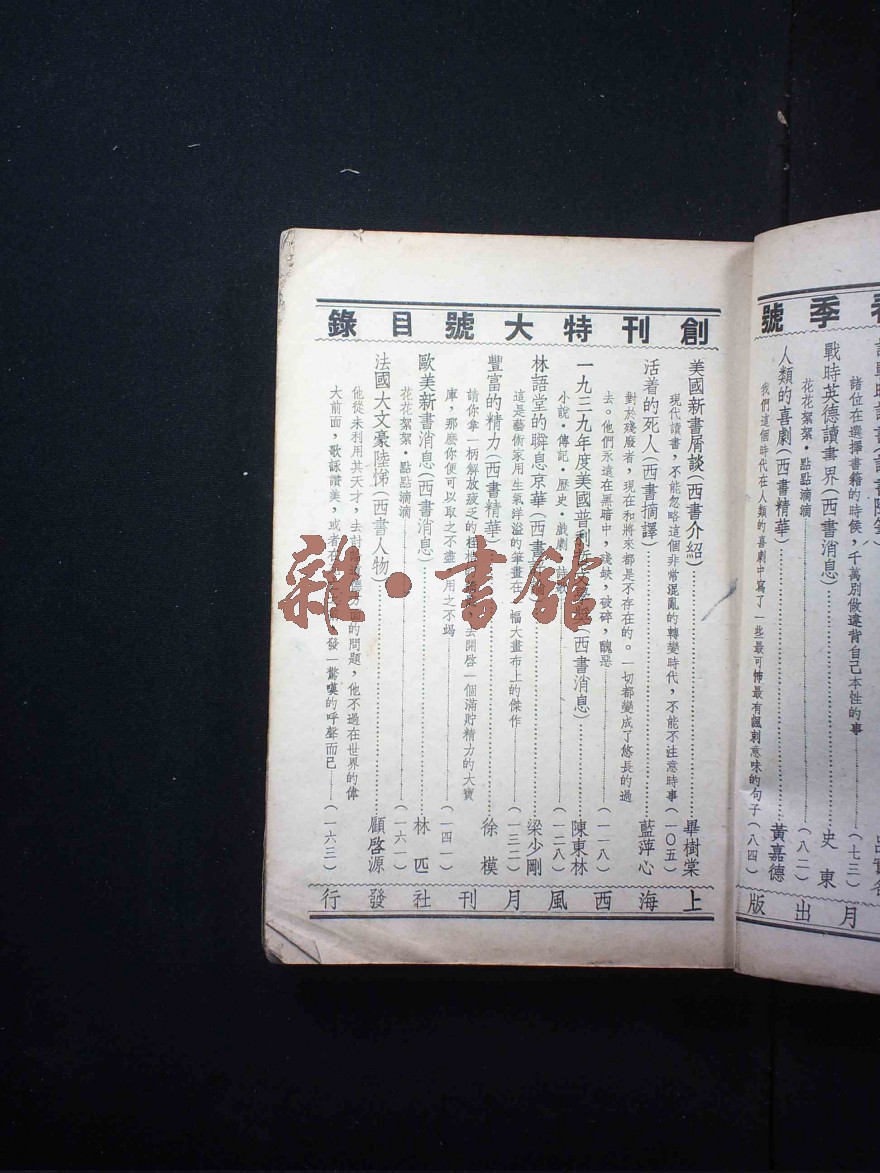 季號
諸位在選擇書籍的時候，千萬別做違背自己本性的事
（七三）
戰時英德讀書界（西書消息）史東
花花絮絮・點點滴滴（八二）
人類的喜劇（西書精華）黃嘉德
我們這個時代在人類的喜劇中寫了一些最可怖最有諷刺意味的句子（八四）
月出版
創刊特大號目錄
美國新書屑談（西書介紹）畢樹棠
現代讀書，不能忽略這個非常混亂的轉變時代，不能不注意時事（一〇五）
活着的死人（西書摘譯）藍萍心
對於殘廢者，現在和將來都是不存在的。一切都變成了悠長的過
去。他們永遠在黑暗中，殘缺，破碎，醜惡（一一八）
一九三九年度美國普利（西書消息）陳東林
小說・傳記・歷史・戲劇（一二八）
林語堂的瞬息京華（西書 梁少剛
這是藝術家用生氣洋溢的筆畫在一幅大畫布上的傑作（一三二）
豐富的精力（西書精華）徐模
請你拿一柄解放疲乏的 去開啓一個滿貯精力的大寶
庫，那麼你便可以取之不盡，用之不竭（一四一）
歐美新書消息（西書消息）林匹
花花絮絮・點點滴滴（一六一）
法國大文豪陸悌（西書人物）顧啓源
他從未利用其天才，去討 的問題，他不過在世界的偉
大前面，歌詠讚美，或者在 發一驚嘆的呼聲而已（一六三）
上海西風月刊社發行
雜・書館